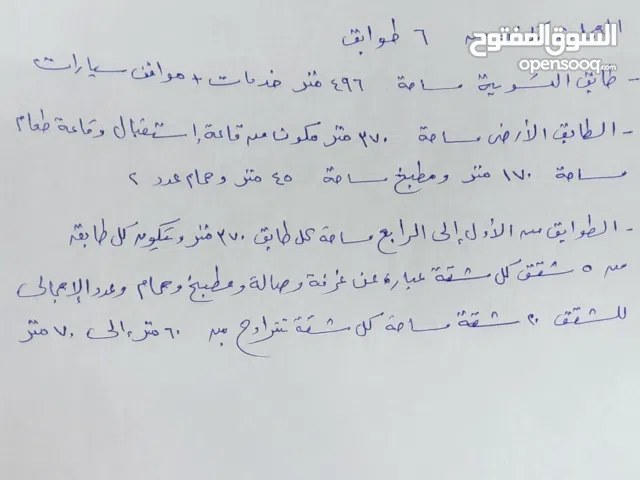 السوق المفتوح
opensooq.com
٦ طوابق
- طابق التسوية مساحة ٤٩٦ متر خدمات + مواقف سيارات
- الطابق الأرضي مساحة ٣٧٠ متر مكون من قاعة إستقبال وقاعة طعام
مساحة ١٧٠ متر ومطبخ مساحة ٤٥ متر وحمام عدد ٢
- الطوابق من الأول إلى الرابع مساحة كل طابق ٣٧٠ متر ويتكون كل طابق
من ٥ شقق كل شقة عبارة عن غرفة وصالة ومطبخ وحمام وعدد الإجمالي
للشقق ٢٠ شقة مساحة كل شقة تتراوح من ٦٠ متر إلى ٧٠ متر